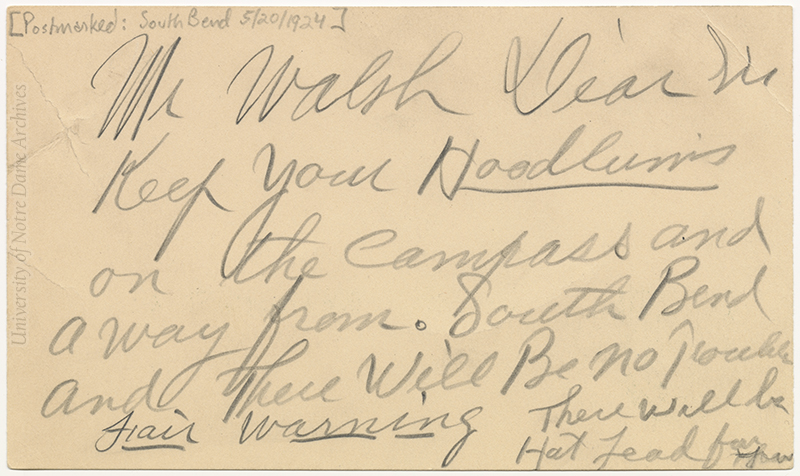 [Postmarked: South Bend 5/20/1924]
Mr Walsh Dear Sir
Keep your Hoodlums
on the campass and
away from. South Bend
and There Will Be no Trouble
Fair Warning
There will be
Hot Lead for you
University of Notre Dame Archives